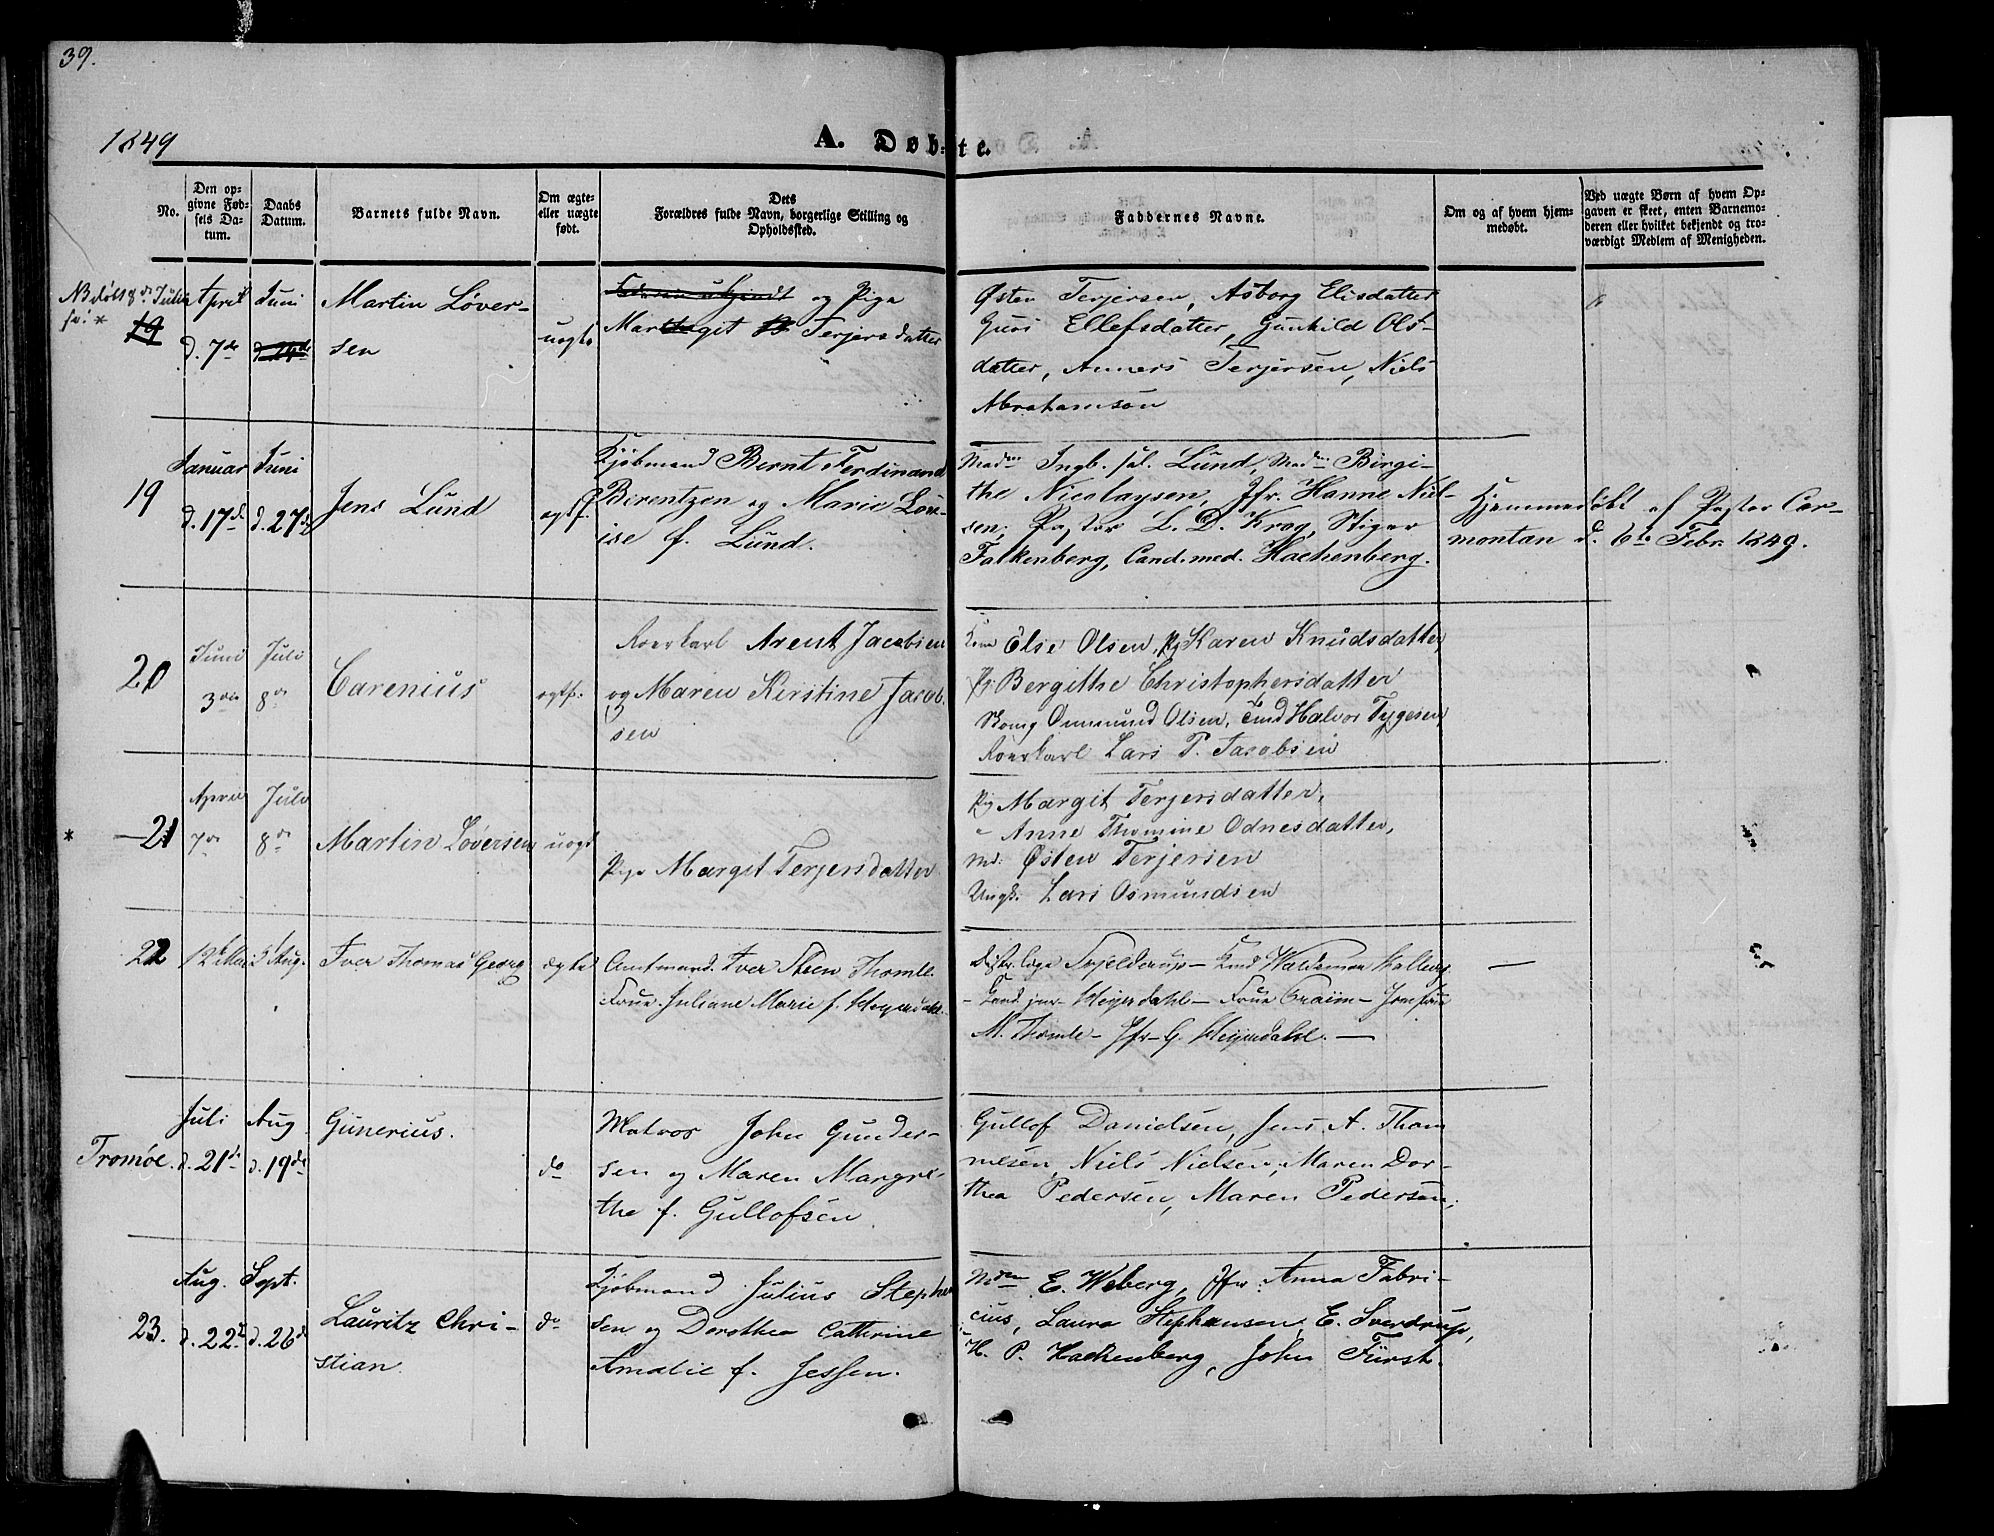 39.
1849
A. Døb-te.
No.
Den op-
givne Fød-
sels Da-
tum.
Daabs
Datum.
Barnets fulde Navn.
Om ægte-
eller uægte
født.
Dets
Forældres fulde Navn, borgerlige Stilling og
Opholdssted.
Faddernes Navne.
Om og af hvem hjem-
medøbt.
Ved uægte Børn af hvem Op-
gaven er skeet, enten Barnemo-
deren eller hvilket bekjendt og tro-
værdigt Medlem af Menigheden.
NB døbt 8de Julii
19
April
d. 7de
Juni
Martin Løver-
sen
uægte
og Pige
Margit Terjersdatter
Østen Terjersen, Asborg Elisdatter
Guro Ellefsdatter, Gunhild Ols-
datter, Anners Terjersen, Niels
Abrahamsøn
19
Januar
d. 17de
Juni
d. 27de
Jens Lund
ægtf.
Kjøbmand Bernt Ferdinand
Berentzen og Marie Lov-
ise f. Lund.
Madm Ingb. sal. Lund, Madm Birgi-
the Nicolaysen, Jfr. Hanne Niel-
sen, Pastor L. D. Krog, Stiger
Falkenberg, Cand. med. Hachenberg.
Hjemmedøbt af Pastor Cor-
montan d. 6te Febr. 1849.
20
Juni
3die
Juli
8de
Carenius
ægtf.
Roerkarl Arent Jacobsen
og Maren Kirstine Jacob
sen
Kone Else Olsen, Pg Karen Knudsdatter
Pg Bergithe Christophersdatter
Ommund Olsen, Halvor Tygesen
Roerkarl Lars P. Jacobsen
* 21
April
7de
Juli
8de
Martin Løversen
uægt
Pige Margit Terjersdatter
Pg Margit Terjersdatter,
" Anne Thomine Odnesdatter,
Md: Østen Terjersen
Ungk: Lars Osmundsen
22
12t Mai
2 Aug.
Iver Thomas Georg
ægte
Amtmand Iver Steen Thomle
Frue Juliane Marie f. Heyerdahl.
Distr. læge Tyelderup –
Cand. jur. Heyerdahl – Frue
M. Thomle – Jfr. G. Heyerdahl. –
—
Tromøe.
Juli
d. 21de
Aug
d. 19de
Gunerius.
do
Matros John Gunder-
sen og Maren Margre-
the f. Gullofsen
Gullof Danielsen, Jens A. Thom
mesen, Niels Nielsen, Maren Dor-
thea Pedersen, Maren Pedersen,
23.
Aug.
d. 22de
Sept.
d. 26de
Lauritz Chri-
stian.
do
Kjøbmand Julius Stephan
sen og Dorothea Cathrine
Amalie f. Jessen.
Mdm E. Weberg, Jfr: Anna Fabri-
cius, Laura Stephansen, E. Sverdrup,
H. P. Hackenberg, John Fürst.